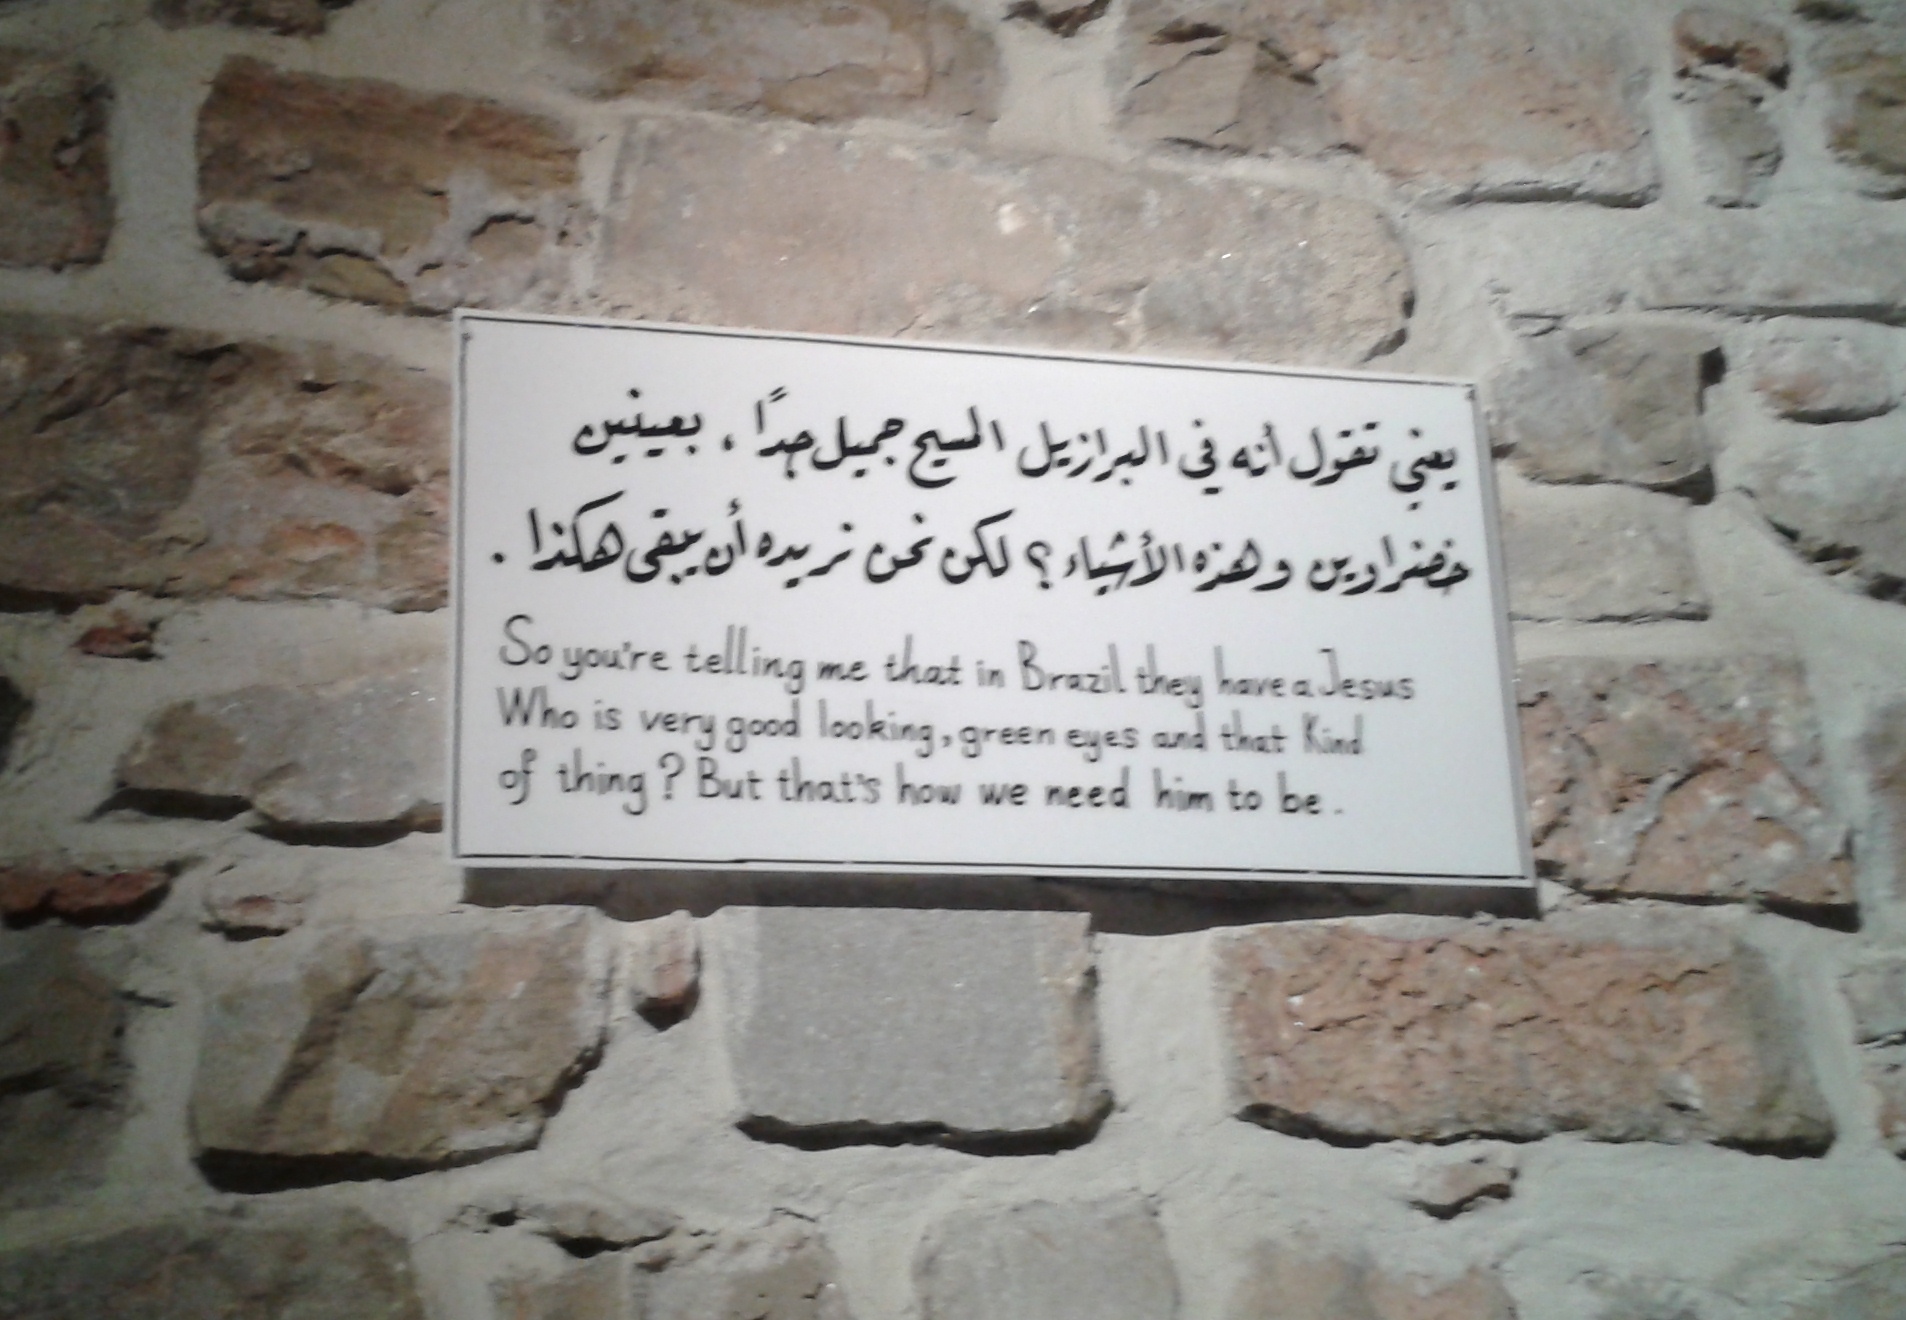 يعني تقول أنه في البرازيل المسيح جميل جدًا ، بعينين
خضراوين وهذه الأشياء ؟ لكن نحن نريده أن يبقى هكذا .
So you're telling me that in Brazil they have a Jesus
Who is very good looking, green eyes and that Kind
of thing? But that's how we need him to be.